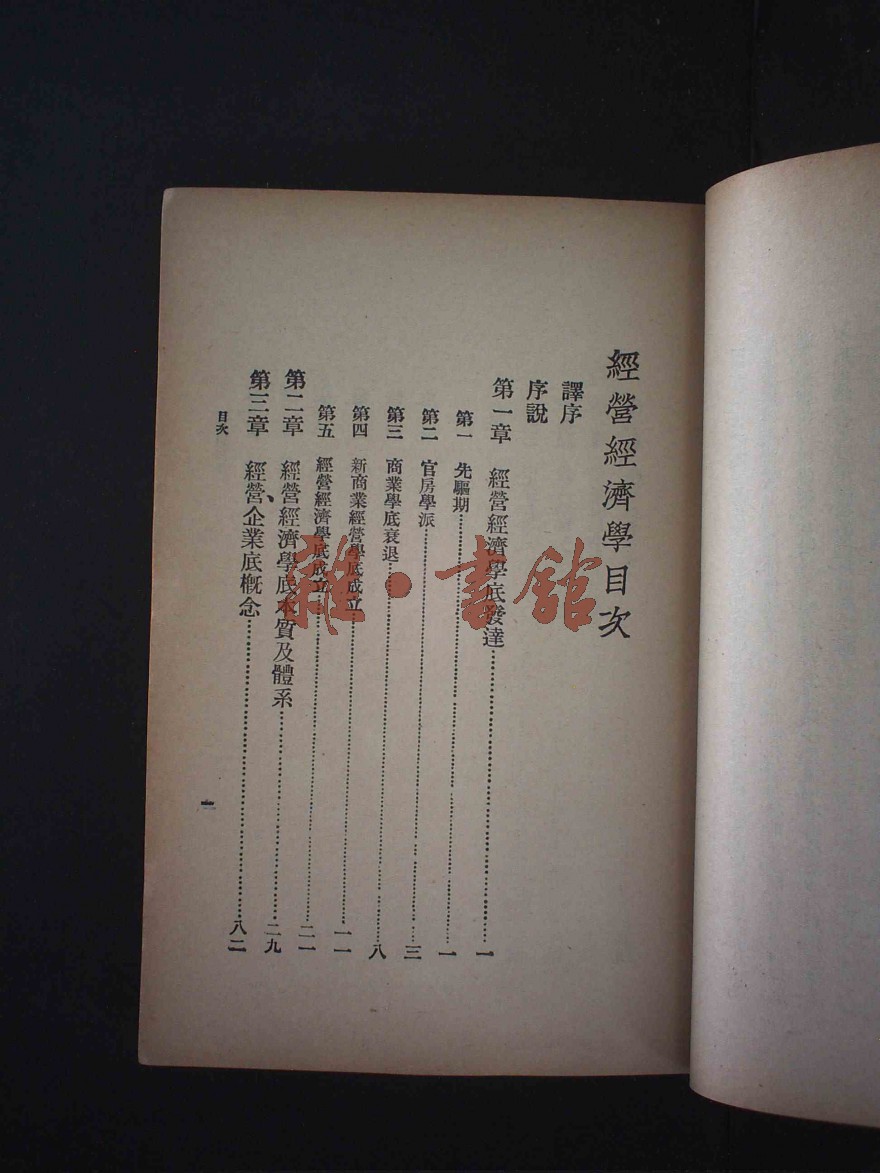 經營經濟學目次
譯序
序說
第一章 經營經濟學底發達……一
第一 先驅期……一
第二 官房學派……三
第三 商業學底衰退……八
第四 新商業經營學底成立……一一
第五 經營經濟學底成立……二一
第二章 經營經濟學底本質及體系……二九
第三章 經營、企業底概念……八二
目次
一
雜·書館